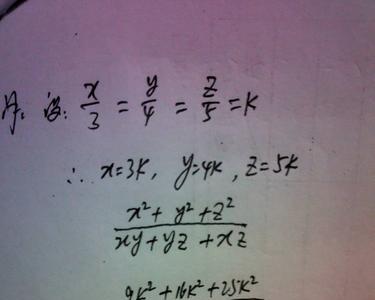 解: 设: x/3 = y/4 = z/5 = k
∴ x=3k, y=4k, z=5k
x²+y²+z²
xy+yz+xz
9k²+16k²+25k²